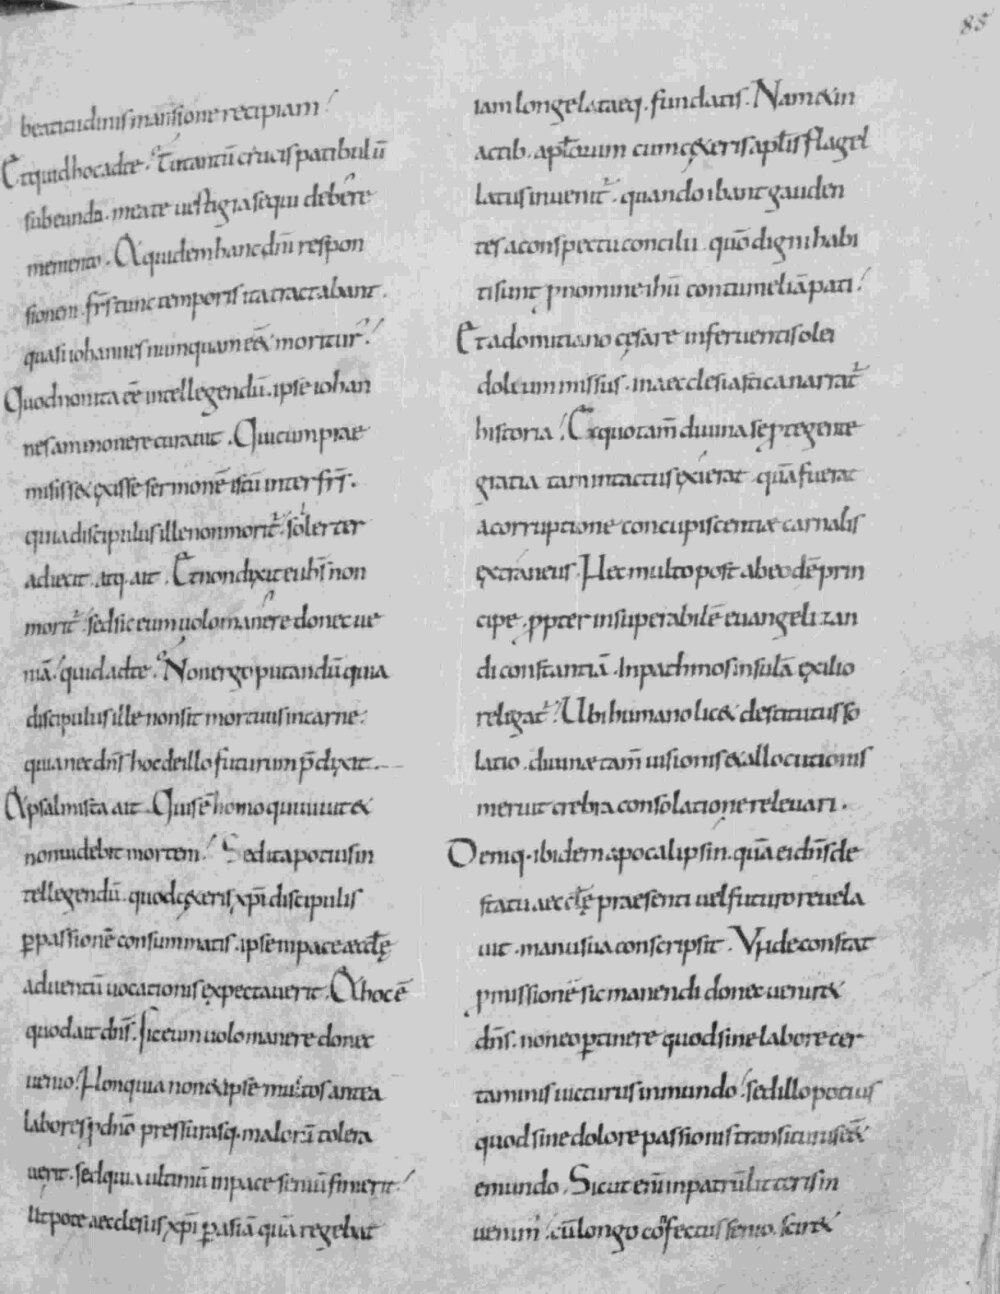 85
beatitudinis mansione recipiam.
Et quid hoc ad te. Tu tantū crucis patibulū
subeundo. meate uestigia sequi debere
memento. At quidem hanc dn̄i respon
sionem. fr̄s tunc temporis ita tractabant.
quasi iohannes numquam eēt moriturꝰ.
Quod non ita eē intellegendū. ipse iohan
nes ammonere curauit. Qui cum prae
misisset exisse sermonē istū inter fr̄s.
quia discipulus ille non morit̉. solerter
adiecit. atq. ait. Et non dixit ei ih̄s non
morit̉. sed sic eum uolo manere donec ue
niā. quid ad te. Non ergo putandū quia
discipulus ille non sit mortuus in carne.
quia nec dn̄s hoc de illo futurum p̄dixit.
At psalmista ait. Quis ē homo qui uiuit et
non uidebit mortem. Sed ita potius in
tellegendū. quod cęteris xp̄i discipulis
ꝑ passionē consummatis. ipse in pace aeccl̄ę
aduentū uocationis expectauerit. At hoc ē
quod ait dn̄s. Sic eum uolo manere donec
uenio. Non quia non et ipse multos antea
labores ꝓ dn̄o pressurasq. malorū tolera
uerit. sed quia ultimū in pace seniū finierit.
Utpote aecclesiis xp̄i ꝑ asiā quā regebat
iam longe lateq. fundatis. Nam et in
actib. apl̄orum cum cęteris apl̄is flagel
latus inuenit̉. quando ibant gauden
tes a conspectu concilii. quō digni habi
ti sunt ꝓ nomine ih̄u contumeliā pati.
Et a domitiano cęsare in feruentis olei
dolium missus. in aecclesiastica narrat̉
historia. Ex quo tam̄ diuina se ꝓtegente
gratia tam intactus exierat. quā fuerat
a corruptione concupiscentiae carnalis
extraneus. Nec multo post ab eodē prin
cipe. ꝓpter insuperabilē euangelizan
di constantiā. In pathmos insulā exilio
religat̉. Ubi humano licet destitutus so
latio. diuinae tam̄ uisionis et allocutionis
meruit crebra consolatione releuari.
Deniq. ibidem apocalipsin. quā ei dn̄s de
statu aeccl̄ę praesenti uel futuro reuela
uit. manu sua conscripsit. Unde constat
ꝓmissionē sic manendi donec ueniret
dn̄s. non eo ꝑtinere quod sine labore cer
taminis uicturus in mundo. sed illo potius
quod sine dolore passionis transiturus eēt
e mundo. Sicut enī in patrū litteris in
uenim̉. cū longo cōfectus senio. sciret